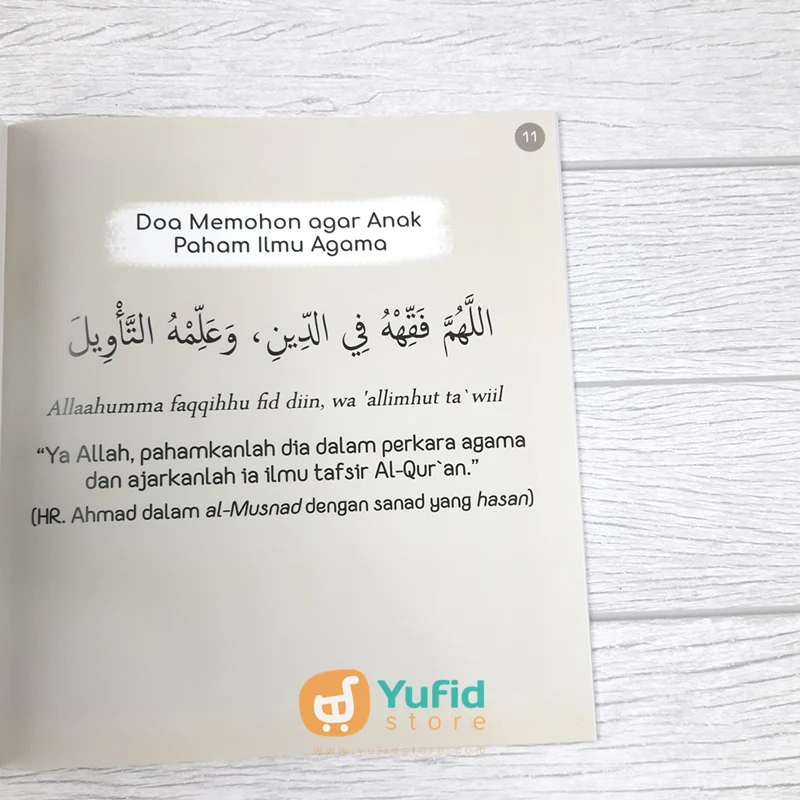 11
Doa Memohon agar Anak
Paham Ilmu Agama
اللَّهُمَّ فَقِّهْهُ فِي الدِّينِ، وَعَلِّمْهُ التَّأْوِيلَ
Allaahumma faqqihhu fid diin, wa 'allimhut ta`wiil
“Ya Allah, pahamkanlah dia dalam perkara agama
dan ajarkanlah ia ilmu tafsir Al-Qur`an.”
(HR. Ahmad dalam al-Musnad dengan sanad yang hasan)
Yufid
store
www.yufidstore.com